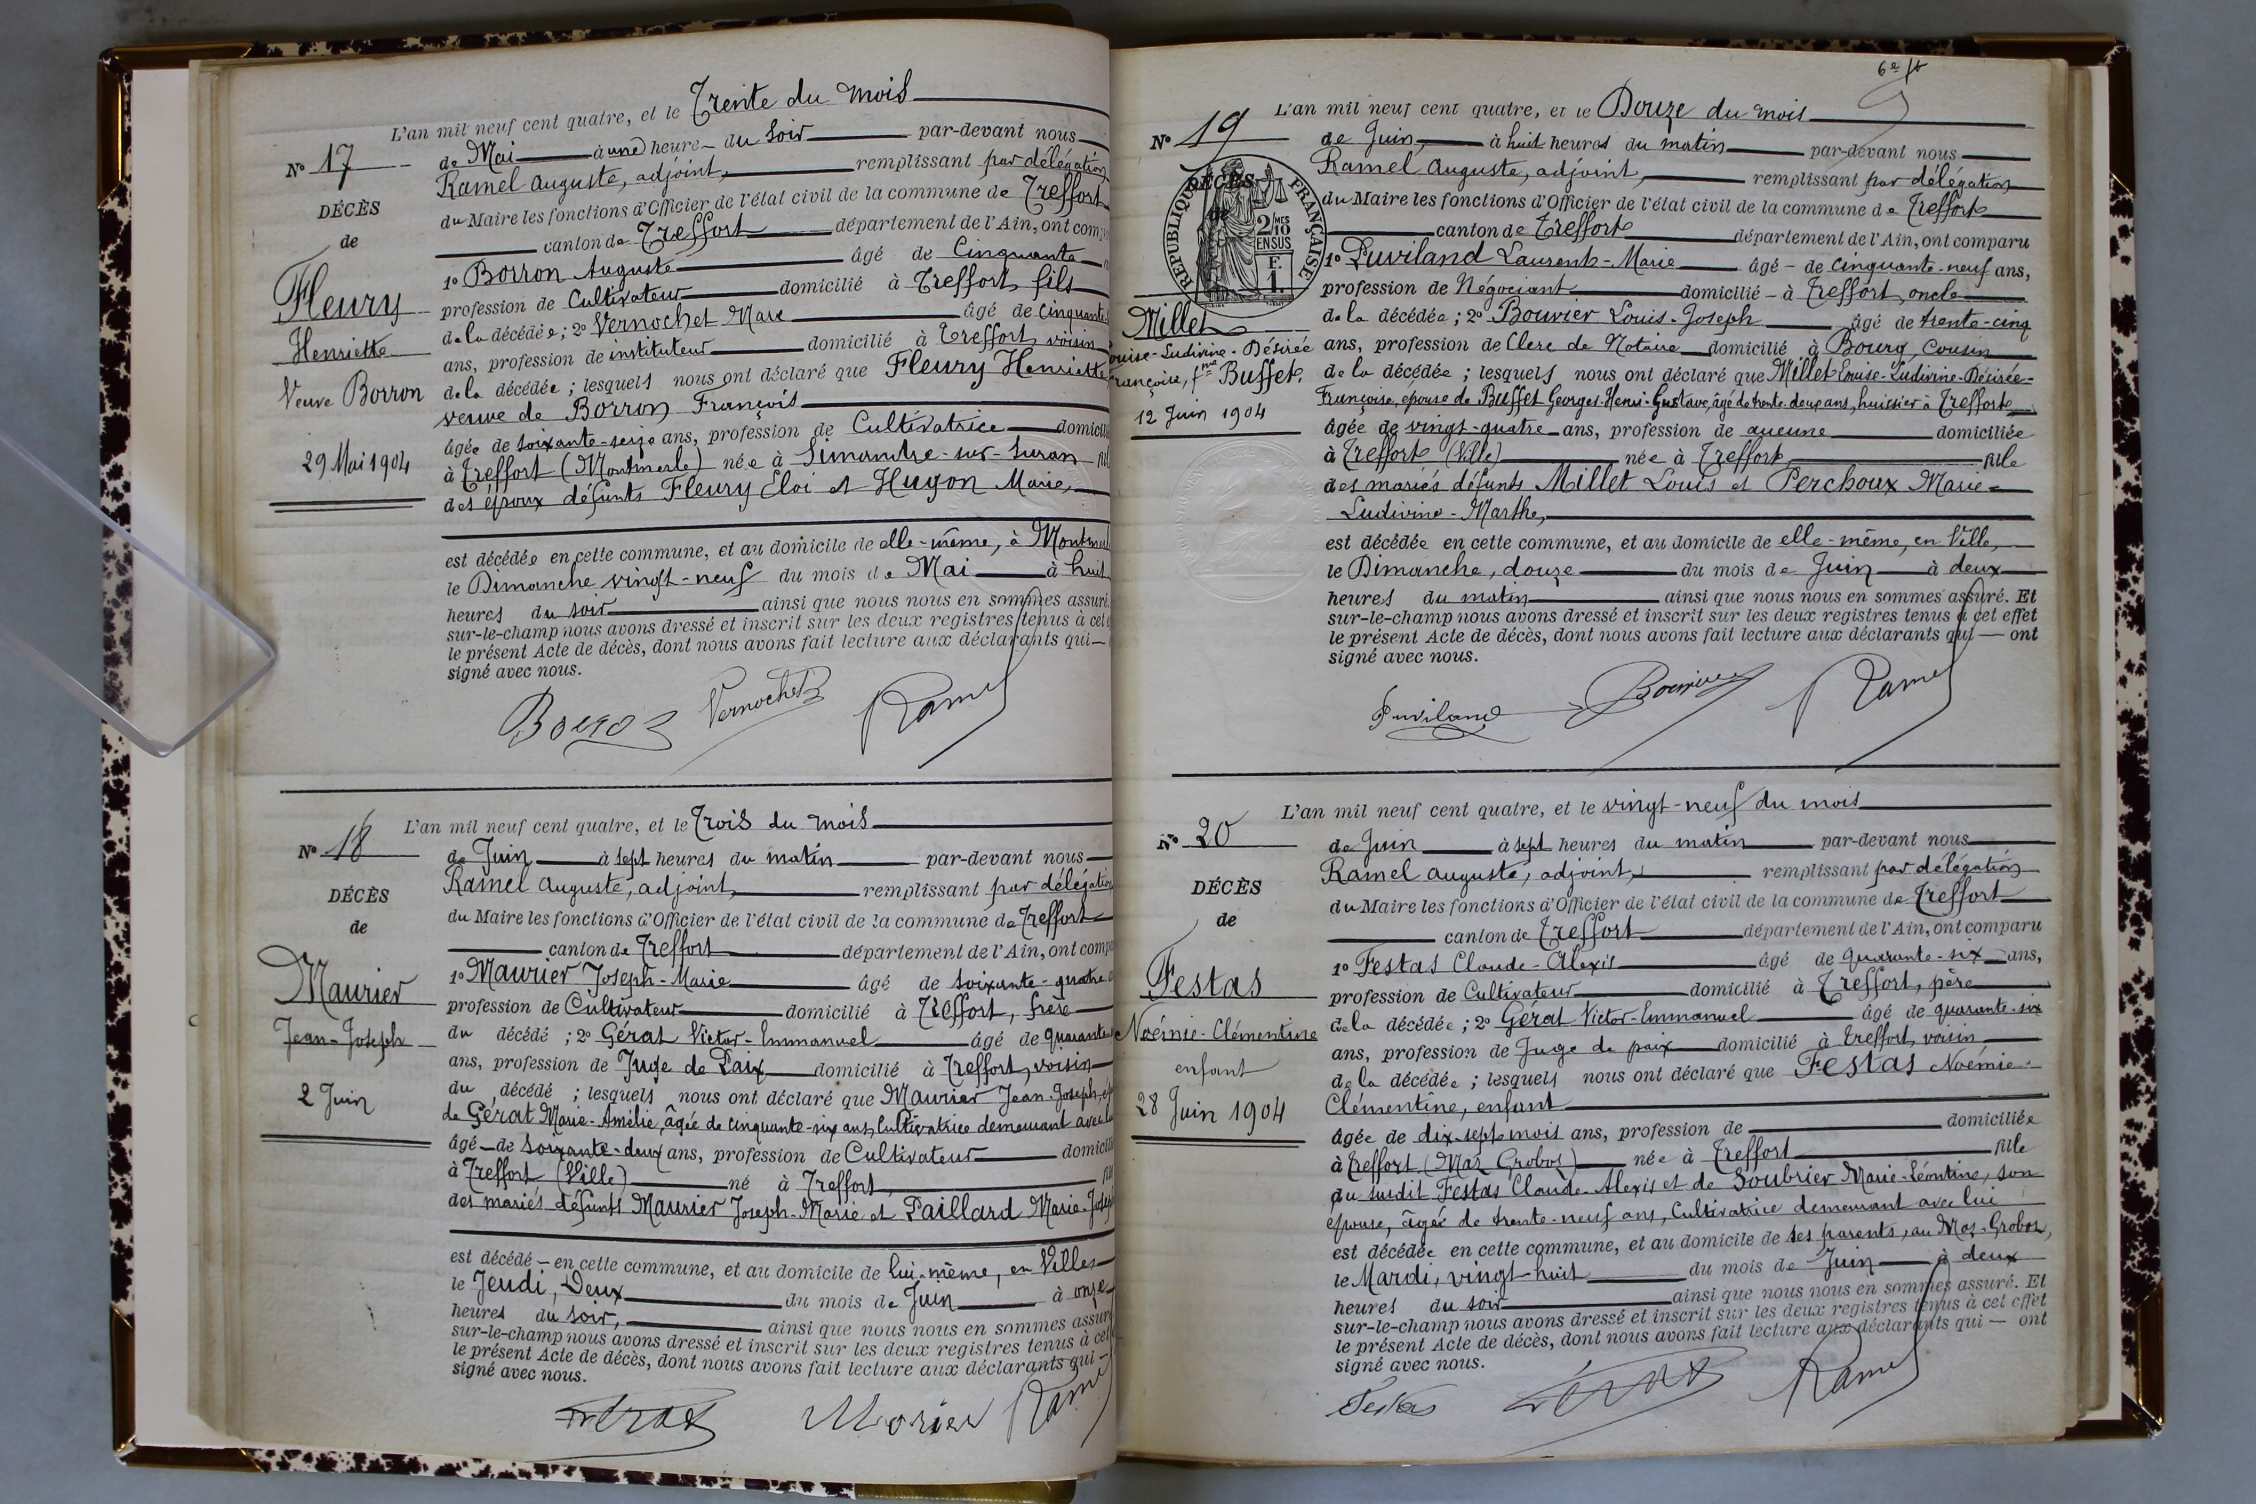 L'an mil neuf cent quatre, et le Trente du mois
No 17
de Mai à une heure du soir par-devant nous
Ramel Auguste, adjoint, remplissant par délégation
DÉCÈS
du Maire les fonctions d'Officier de l'état civil de la commune de Treffort
de
canton de Treffort département de l'Ain, ont comp
Fleury
1o Borron Auguste âgé de Cinquante
profession de Cultivateur domicilié à Treffort, fils
Henriette
de la décédée; 2o Vernochet Marc âgé de cinquante
ans, profession de instituteur domicilié à Treffort, voisin
Veuve Borron
de la décédée; lesquels nous ont déclaré que Fleury Henriette
veuve de Borron François
âgée de soixante-seize ans, profession de Cultivatrice domicili
29 Mai 1904
à Treffort (Montmerle) née à Simandre-sur-Suran fil
des époux défunts Fleury Eloi et Hugon Marie,
est décédée en cette commune, et au domicile de elle-même, à Montme
le Dimanche vingt-neuf du mois de Mai à huit
heures du soir ainsi que nous nous en sommes assuré.
sur-le-champ nous avons dressé et inscrit sur les deux registres tenus à cet
le présent Acte de décès, dont nous avons fait lecture aux déclarants qui
signé avec nous.
Borron Vernochet Ramel
L'an mil neuf cent quatre, et le Trois du mois
No 18
de Juin à sept heures du matin par-devant nous
Ramel Auguste, adjoint, remplissant par délégation
DÉCÈS
du Maire les fonctions d'Officier de l'état civil de la commune de Treffort
de
canton de Treffort département de l'Ain, ont comp
Maurier
1o Maurier Joseph-Marie âgé de soixante-quatre
profession de Cultivateur domicilié à Treffort, frère
Jean-Joseph
du décédé; 2o Gérat Victor-Emmanuel âgé de quarante
ans, profession de Juge de Paix domicilié à Treffort, voisin
2 Juin
du décédé; lesquels nous ont déclaré que Maurier Jean-Joseph,
de Gérat Marie-Amélie, âgée de cinquante-six ans, Cultivatrice demeurant avec
âgé de soixante-deux ans, profession de Cultivateur domicili
à Treffort (Ville) né à Treffort, fil
des mariés défunts Maurier Joseph-Marie et Paillard Marie-Josep
est décédé en cette commune, et au domicile de lui-même, en Ville
le Jeudi, Deux du mois de Juin à onze
heures du soir, ainsi que nous nous en sommes assuré
sur-le-champ nous avons dressé et inscrit sur les deux registres tenus à cet
le présent Acte de décès, dont nous avons fait lecture aux déclarants qui
signé avec nous.
Gérat Morier Ramel
6e ft
L'an mil neuf cent quatre, et le Douze du mois
No 19
de Juin, à huit heures du matin par-devant nous
Ramel Auguste, adjoint, remplissant par délégation
DÉCÈS
de
RÉPUBLIQUE FRANÇAISE
2/10 MES
EN SUS
F.
1.
du Maire les fonctions d'Officier de l'état civil de la commune de Treffort
canton de Treffort département de l'Ain, ont comparu
1o Puviland Laurent-Marie âgé de cinquante-neuf ans,
profession de Négociant domicilié à Treffort, oncle
Millet
de la décédée; 2o Bouvier Louis-Joseph âgé de trente-cinq
ouise-Ludivine-Désirée
ans, profession de Clerc de Notaire domicilié à Bourg, cousin
rançoise, fme Buffet.
de la décédée; lesquels nous ont déclaré que Millet Louise-Ludivine-Désirée-
Françoise, épouse de Buffet Georges-Henri-Gustave, âgé de trente-deux ans, huissier à Treffort
12 Juin 1904
âgée de vingt-quatre ans, profession de aucune domiciliée
à Treffort (Ville) née à Treffort fille
des mariés défunts Millet Louis et Perchoux Marie-
Ludivine-Marthe,
est décédée en cette commune, et au domicile de elle-même, en Ville,
le Dimanche, douze du mois de Juin à deux
heures du matin ainsi que nous nous en sommes assuré. Et
sur-le-champ nous avons dressé et inscrit sur les deux registres tenus à cet effet
le présent Acte de décès, dont nous avons fait lecture aux déclarants qui ont
signé avec nous.
Puviland Bouvier Ramel
L'an mil neuf cent quatre, et le vingt-neuf du mois
No 20
de Juin à sept heures du matin par-devant nous
Ramel Auguste, adjoint, remplissant par délégation
DÉCÈS
du Maire les fonctions d'Officier de l'état civil de la commune de Treffort
de
canton de Treffort département de l'Ain, ont comparu
1o Festas Claude-Alexis âgé de quarante-six ans,
Festas
profession de Cultivateur domicilié à Treffort, père
de la décédée; 2o Gérat Victor-Emmanuel âgé de quarante-six
Noémie-Clémentine
ans, profession de Juge de paix domicilié à Treffort, voisin
enfant
de la décédée; lesquels nous ont déclaré que Festas Noémie-
28 Juin 1904
Clémentine, enfant
âgée de dix-sept mois ans, profession de domiciliée
à Treffort (Mas Groboz) née à Treffort fille
du susdit Festas Claude-Alexis et de Soubrier Marie-Léontine, son
épouse, âgée de trente-neuf ans, Cultivatrice demeurant avec lui
est décédée en cette commune, et au domicile de ses parents, au Mas-Groboz,
le Mardi, vingt-huit du mois de Juin à deux
heures du soir ainsi que nous nous en sommes assuré. Et
sur-le-champ nous avons dressé et inscrit sur les deux registres tenus à cet effet
le présent Acte de décès, dont nous avons fait lecture aux déclarants qui ont
signé avec nous.
Festas Gérat Ramel